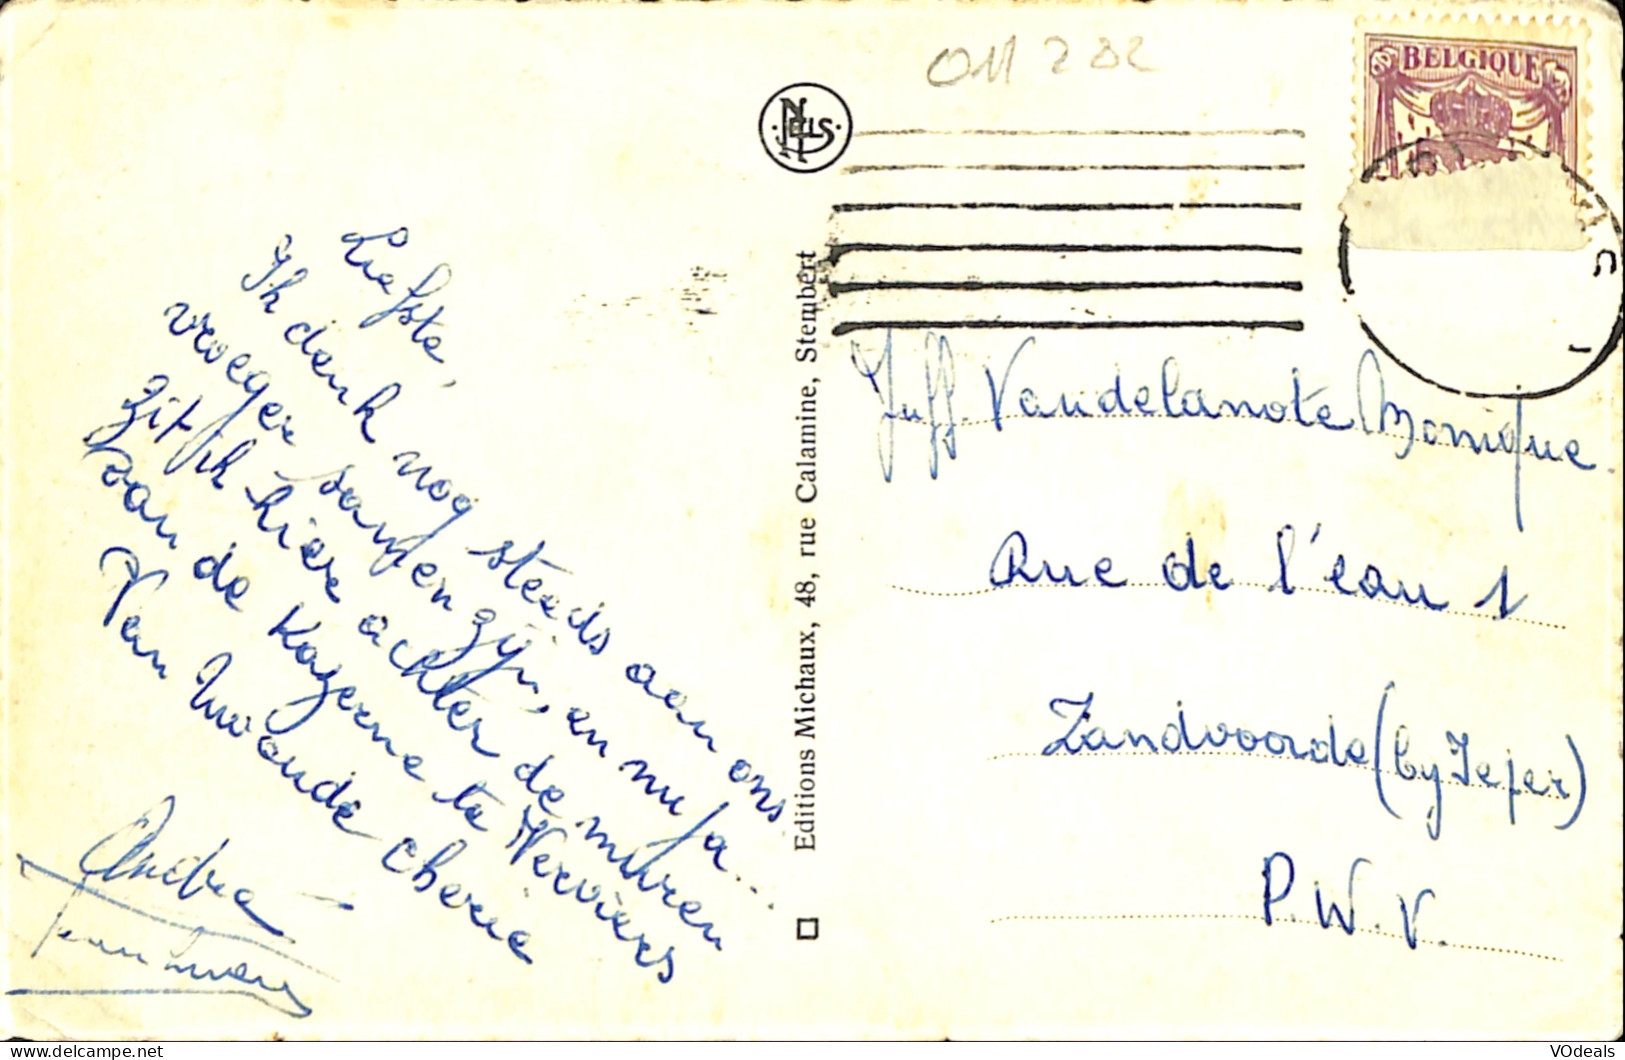 011 282
BELGIQUE
NELS
Liefste,
Ik denk nog steeds aan ons
vroeger samen zijn, en nu ja...
zit ik hier achter de muren
van de Kazerne te Verviers
Van uw oude cherie
André
Editions Michaux, 48, rue Calamine, Stembert
Juff. Vandelanote Monique
Rue de l'eau 1
Zandvoorde (by Ieper)
P.W.V.
VOdeals
https://www.delcampe.net